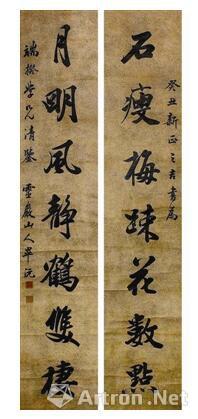 癸丑新正之吉書爲
石瘦梅疎花數點
月明風靜鶴雙棲
端揆學兄清鑒
靈巖山人畢沅
Artron.Net